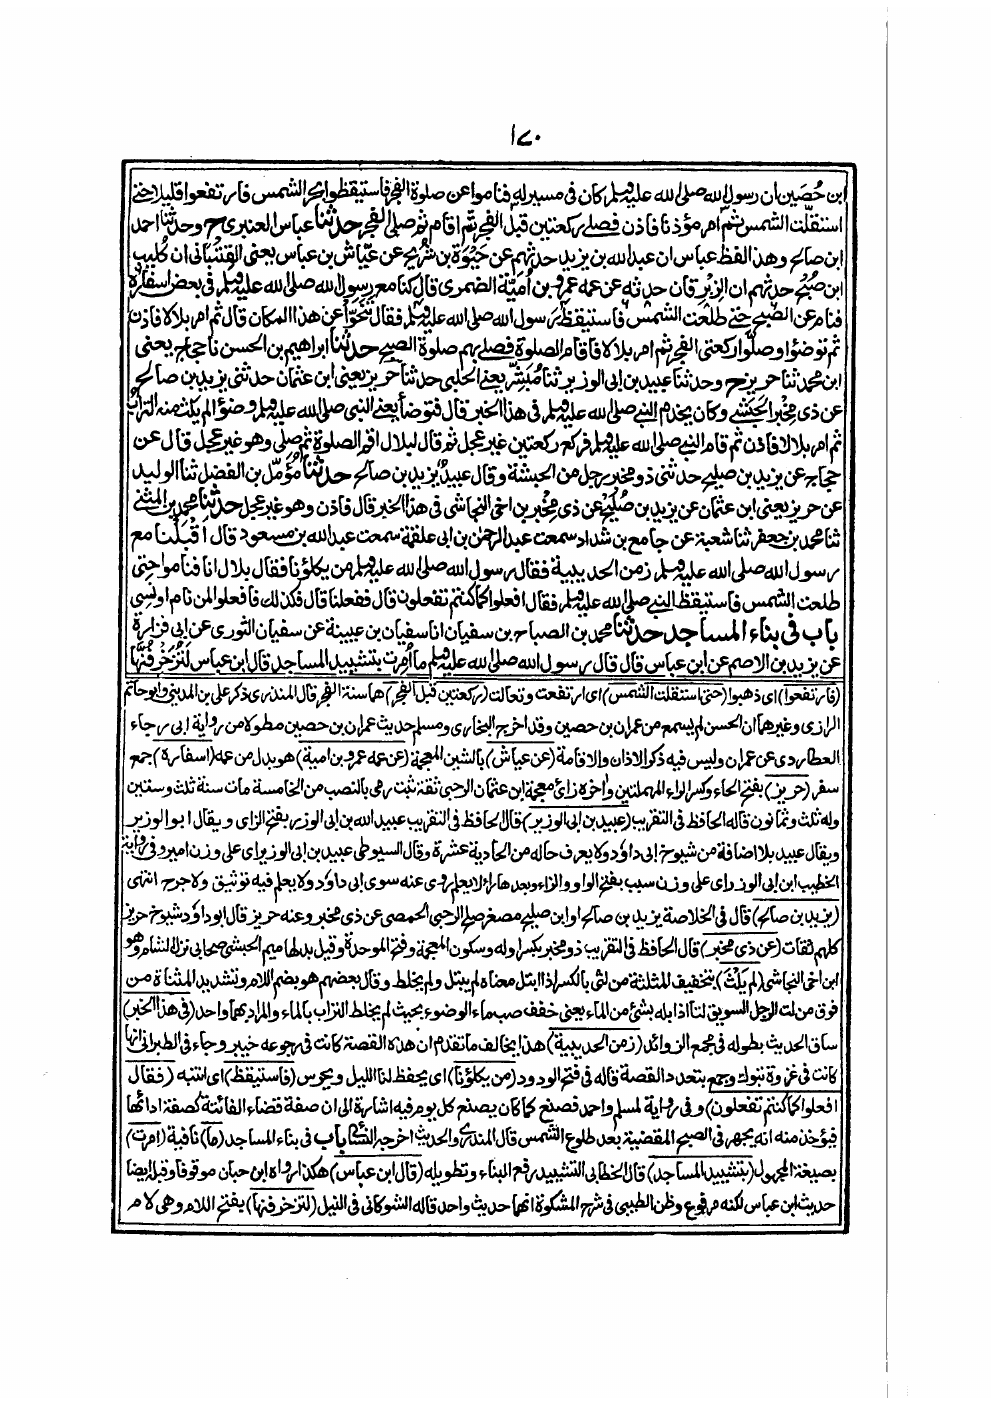 ١٧٠
ابن حُصَين ان رسول الله صلى الله عليه وسلم كان فى مسير له فناموا عن صلوة الفجر فاستيقظوا بحر الشمس فارتفعوا قليلا حتى
استقلّت الشمس ثم امر مؤذنا فاذن فصلى ركعتين قبل الفجر ثم اقام ثم صلى الفجر حدثنا عباس العنبرى ح وحدثنا احمد
ابن صالح وهذا لفظ عباس ان عبد الله بن يزيد حدثهم عن حَيْوَة بن شُرَيح عن عيّاش بن عباس يعنى القِتْبَانى ان كُلَيب
ابن صُبْح حدثهم ان الزِبْرِقان حدثه عن عمه عمرو بن أميّة الضمرى قال كنا مع رسول الله صلى الله عليه وسلم فى بعض اسفاره
فنام عن الصبح حتى طلعت الشمس فاستيقظ رسول الله صلى الله عليه وسلم فقال تَنَحّوا عن هذا المكان قال ثم امر بلالا فاذن
ثم توضؤا وصلّوا ركعتى الفجر ثم امر بلالا فاقام الصلوة فصلى بهم صلوة الصبح حدثنا ابراهيم بن الحسن نا حجاج يعنى
ابن محمد ثنا حريز ح وحدثنا عبيد بن ابى الوزير ثنا مُبَشّر يعنى الحلبى حدثنا حريز يعنى ابن عثمان حدثنى يزيد بن صالح
عن ذى مِخْبَر الحَبَشى وكان يخدم النبى صلى الله عليه وسلم فى هذا الخبر قال فتوضأ يعنى النبى صلى الله عليه وسلم وضوًا لم يلث منه التراب
ثم امر بلالا فاذن ثم قام النبى صلى الله عليه وسلم فركع ركعتين غير عجل ثم قال لبلال اقم الصلوة ثم صلى وهو غير عجل قال عن
حجاج عن يزيد بن صليح حدثنى ذو مخبر رجل من الحبشة وقال عبيد يزيد بن صالح حدثنا مُؤمّل بن الفضل ثنا الوليد
عن حريز يعنى ابن عثمان عن يزيد بن صُلَيْح عن ذى مِخْبَر بن اخى النجاشى فى هذا الخبر قال فاذن وهو غير عجل حدثنا محمد بن المثنى
ثنا محمد بن جعفر ثنا شعبة عن جامع بن شداد سمعت عبد الرحمن بن ابى علقمة سمعت عبد الله بن مسعود قال اقبلنا مع
رسول الله صلى الله عليه وسلم زمن الحديبية فقال رسول الله صلى الله عليه وسلم من يكلؤنا فقال بلال انا فناموا حتى
طلعت الشمس فاستيقظ النبى صلى الله عليه وسلم فقال افعلوا كما كنتم تفعلون قال ففعلنا قال فكذلك فافعلوا لمن نام او نسى
باب فى بناء المساجد حدثنا محمد بن الصباح بن سفيان انا سفيان بن عيينة عن سفيان الثورى عن ابى فزارة
عن يزيد بن الاصم عن ابن عباس قال قال رسول الله صلى الله عليه وسلم ما أمرت بتشييد المساجد قال ابن عباس لَتُزَخْرِفُنَّها
(فارتفعوا) اى ذهبوا (حتى استقلت الشمس) اى ارتفعت وتعالت (ركعتين قبل الفجر) هما سنة الفجر قال المنذرى ذكر على بن المدينى وابو حاتم
الرازى وغيرهما ان الحسن لم يسمع من عمران بن حصين وقد اخرج البخارى ومسلم حديث عمران بن حصين مطولا من رواية ابى رجاء
العطاردى عن عمران وليس فيه ذكر الاذان والاقامة (عن عياش) بالشين المعجمة (عن عمه عمرو بن امية) هو بدل من عمه (اسفاره) جمع
سفر (حريز) بفتح الحاء وكسر الراء المهملتين واخره زاى معجمة ابن عثمان الرحبى ثقة ثبت رمى بالنصب من الخامسة مات سنة ثلث وستين
وله ثلث وثمانون قاله الحافظ فى التقريب (عبيد بن ابى الوزير) قال الحافظ فى التقريب عبيد الله بن ابى الوزير بفتح الزاى ويقال ابو الوزير
ويقال عبيد بلا اضافة من شيوخ ابى داود ولا يعرف حاله من الحادية عشرة وقال السيوطى عبيد بن ابى الوزير اى على وزن امير وفى رواية
الخطيب ابن ابى الوزر اى على وزن سبب بفتح الواو والزاء وبعدها راء لا يعلم روى عنه سوى ابى داود ولا يعلم فيه توثيق ولا جرح انتهى
(يزيد بن صالح) قال فى الخلاصة يزيد بن صالح او ابن صليح مصغر صلح الرحبى الحمصى عن ذى مخبر وعنه حريز قال ابو داود شيوخ حريز
كلهم ثقات (عن ذى مخبر) قال الحافظ فى التقريب ذو مخبر بكسر اوله وسكون المعجمة وفتح الموحدة وقيل بدلها ميم الحبشى صحابى نزل الشام وهو
ابن اخى النجاشى (لم يلث) بتخفيف المثلثة من لثى بالكسر اذا ابتل معناه لم يبتل ولم يخلط وقال بعضهم هو بضم اللام وتشديد المثناة من
فوق من لت الرجل السويق لتا اذا بله بشئ من الماء يعنى خفف صب ماء الوضوء بحيث لم يخلط التراب بالماء والمراد بهما واحد (فى هذا الخبر)
ساق الحديث بطوله فى مجمع الزوائد (زمن الحديبية) هذا يخالف ما تقدم ان هذه القصة كانت فى رجوعه خيبر وجاء فى الطبرانى انها
كانت فى غزوة تبوك وجمع بتعدد القصة قاله فى فتح الودود (من يكلؤنا) اى يحفظ لنا الليل ويحرس (فاستيقظ) اى انتبه (فقال
افعلوا كما كنتم تفعلون) وفى رواية لمسلم واحد فصنع كما كان يصنع كل يوم فيه اشارة الى ان صفة قضاء الفائتة كصفة ادائها
فيؤخذ منه انه يجهر فى الصبح المقضية بعد طلوع الشمس قال المنذرى والحديث اخرجه النسائى باب فى بناء المساجد (ما) نافية (امرت)
بصيغة المجهول (بتشييد المساجد) قال الخطابى التشييد رفع البناء وتطويله (قال ابن عباس) هكذا رواه ابن حبان موقوفا وقبله ايضا
حديث ابن عباس لكنه مرفوع وظن الطيبى فى شرح المشكوة انهما حديث واحد قاله الشوكانى فى النيل (لتزخرفنها) بفتح اللام وهى لام